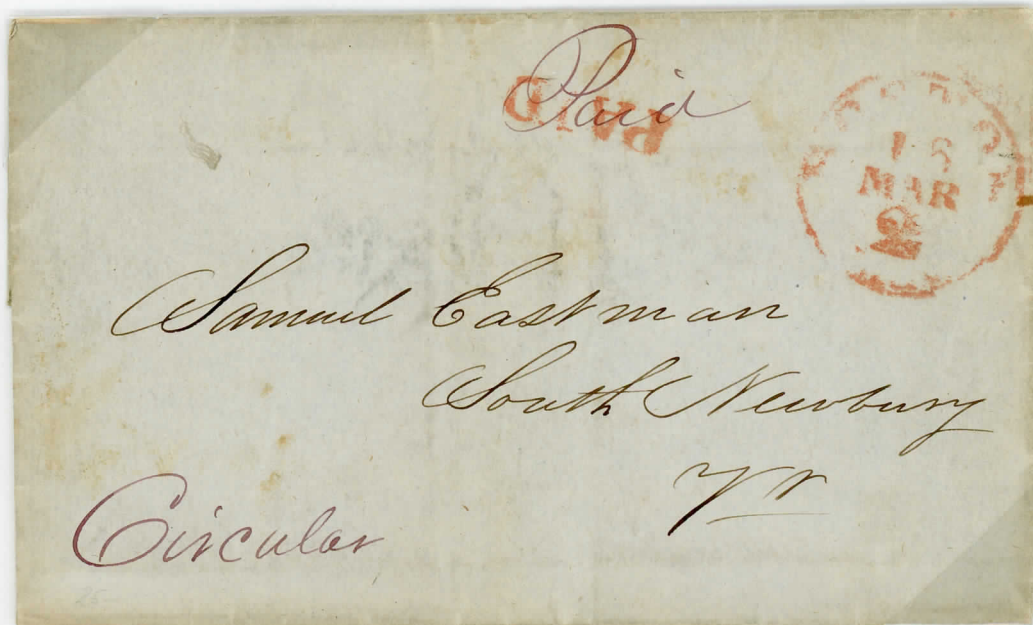 Paid
PAID
MAR
Samuel Eastman
South Newbury
Vt
Circular
25